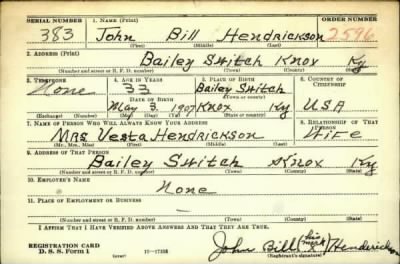 SERIAL NUMBER 1. NAME (Print) ORDER NUMBER
383 John Bill Hendrickson 2596
(First) (Middle) (Last)
2. ADDRESS (Print)
Bailey Switch Knox Ky
(Number and street or R. F. D. number) (Town) (County) (State)
3. TELEPHONE 4. AGE IN YEARS 5. PLACE OF BIRTH 6. COUNTRY OF CITIZENSHIP
None 33 Bailey Switch
DATE OF BIRTH (Town or county)
May 3 1907 Knox Ky USA
(Exchange) (Number) (Mo.) (Day) (Yr.) (State or country)
7. NAME OF PERSON WHO WILL ALWAYS KNOW YOUR ADDRESS 8. RELATIONSHIP OF THAT PERSON
Mrs Vesta Hendrickson Wife
(Mr., Mrs., Miss) (First) (Middle) (Last)
9. ADDRESS OF THAT PERSON
Bailey Switch Knox Ky
(Number and street or R. F. D. number) (Town) (County) (State)
10. EMPLOYER'S NAME
None
11. PLACE OF EMPLOYMENT OR BUSINESS
–
(Number and street or R. F. D. number) (Town) (County) (State)
I AFFIRM THAT I HAVE VERIFIED ABOVE ANSWERS AND THAT THEY ARE TRUE.
REGISTRATION CARD
D. S. S. Form 1 (over) John Bill (his mark X) Hendrickson
(Registrant's signature)